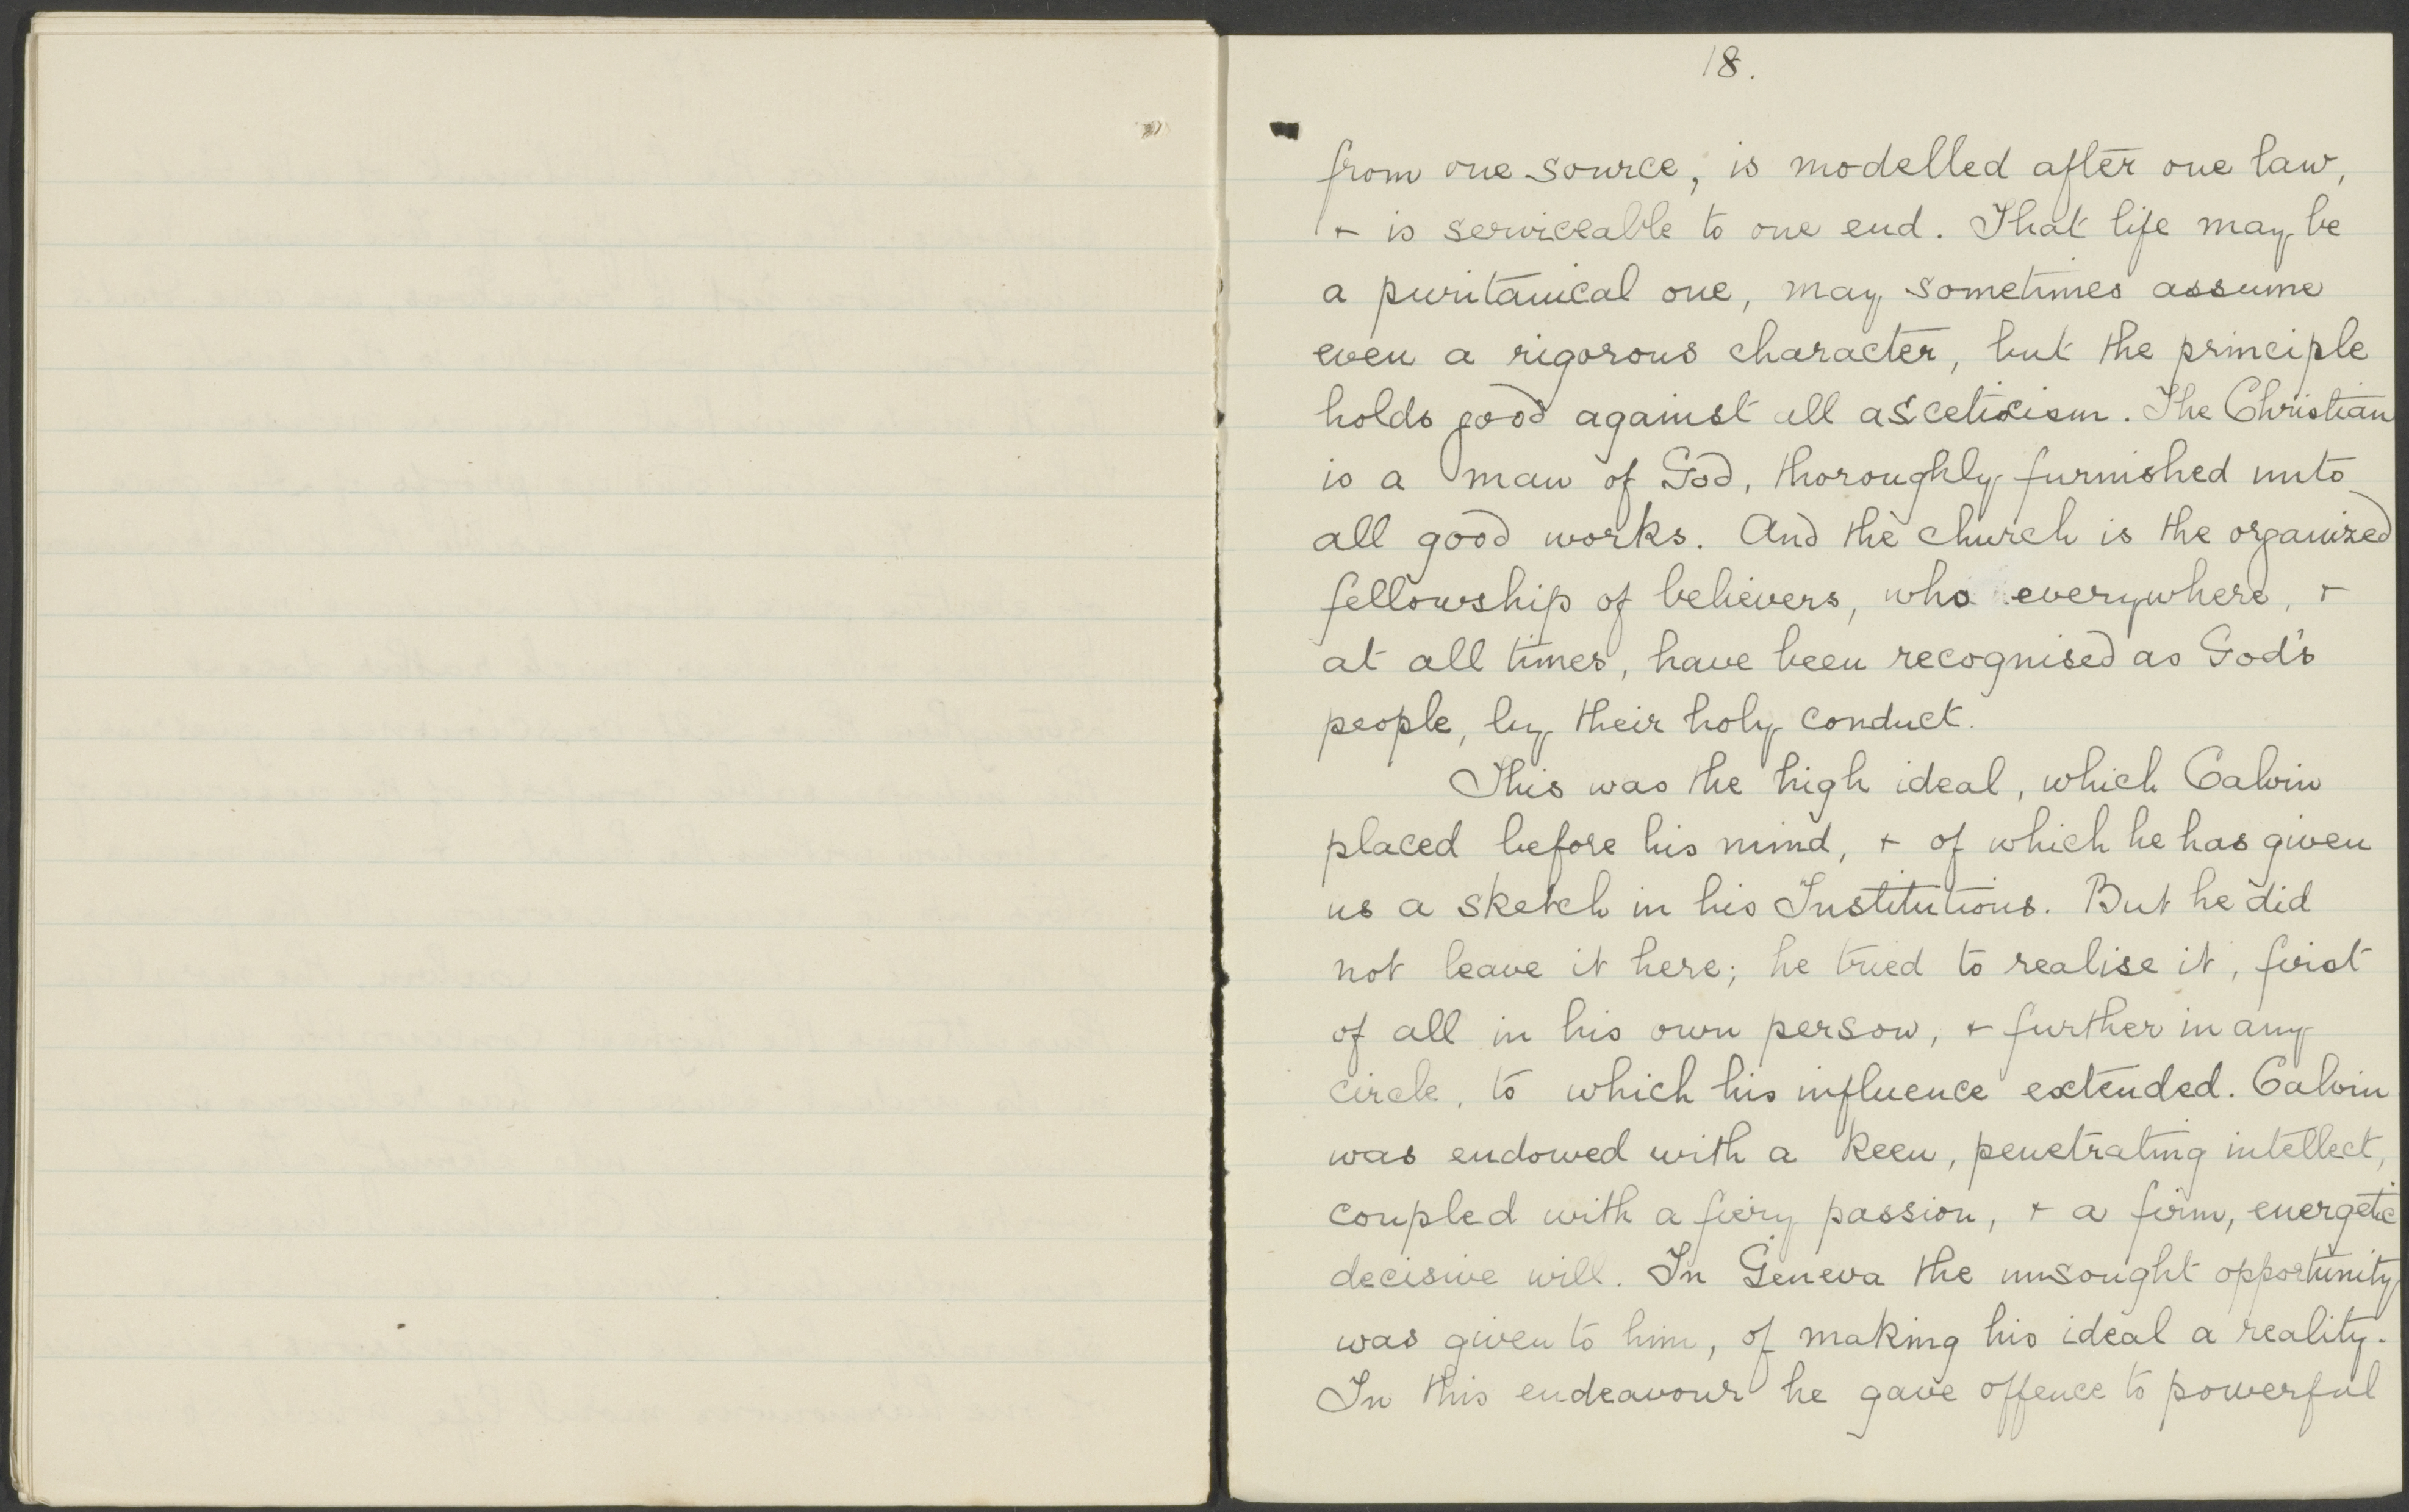 18.
from one source, is modelled after one law,
+ is serviceable to one end. That life may be
a puritanical one, may sometimes assume
even a rigorous character, but the principle
holds good against all asceticism. The Christian
is a man of God, thoroughly furnished unto
all good works. And the church is the organized
fellowship of believers, who everywhere, +
at all times, have been recognised as God's
people, by their holy conduct.
This was the high ideal, which Calvin
placed before his mind, + of which he has given
us a sketch in his Institutions. But he did
not leave it here; he tried to realise it, first
of all in his own person, + further in any
circle, to which his influence extended. Calvin
was endowed with a keen, penetrating intellect,
coupled with a fiery passion, + a firm, energetic
decisive will. In Geneva the unsought opportunity
was given to him, of making his ideal a reality.
In this endeavour he gave offence to powerful